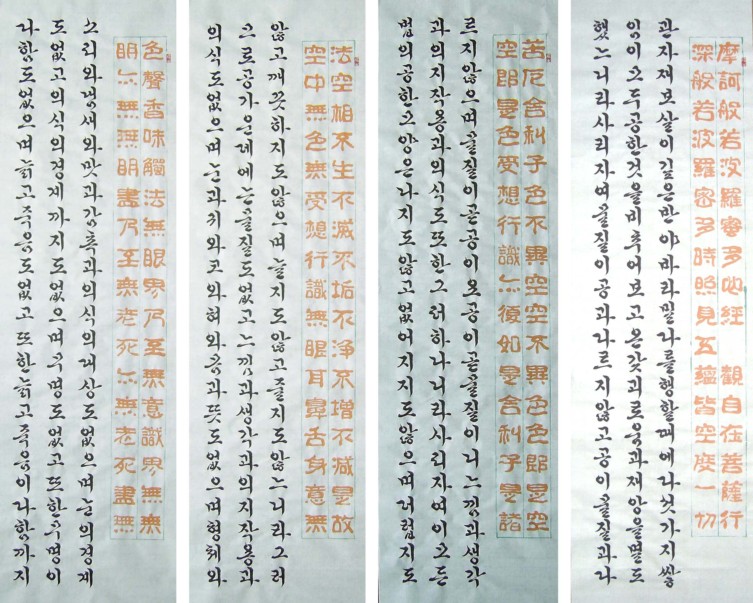 摩訶般若波羅蜜多心經 觀自在菩薩行
深般若波羅密多時照見五蘊皆空度一切
관자재보살이 깊은 반야바라밀다를 행할 때에 다섯 가지 쌓
임이 모두 공한 것을 비추어 보고 온갖 괴로움과 재앙을 멸도
했느니라 사리자여 물질이 공과 다르지 않고 공이 물질과 다
苦厄舍利子色不異空空不異色色卽是空
空卽是色受想行識亦復如是舍利子是諸
르지 않으며 물질이 곧 공이오 공이 곧 물질이니 느낌과 생각
과 의지작용과 의식도 또한 그러하니라 사리자여 이 모든
법의 공한 모양은 나지도 않고 없어지지도 않으며 더럽지도
法空相不生不滅不垢不淨不增不減是故
空中無色無受想行識無眼耳鼻舌身意無
않고 깨끗하지도 않으며 늘지도 않고 줄지도 않느니라 그러
므로 공 가운데에는 물질도 없고 느낌과 생각과 의지작용과
의식도 없으며 눈과 귀와 코와 혀와 몸과 뜻도 없으며 형체와
色聲香味觸法無眼界乃至無意識界無無
明亦無無明盡乃至無老死亦無老死盡無
소리와 냄새와 맛과 감촉과 의식의 대상도 없으며 눈의 경계
도 없고 의식의 경계까지도 없으며 무명도 없고 또한 무명이
다함도 없으며 늙고 죽음도 없고 또한 늙고 죽음이 다함까지